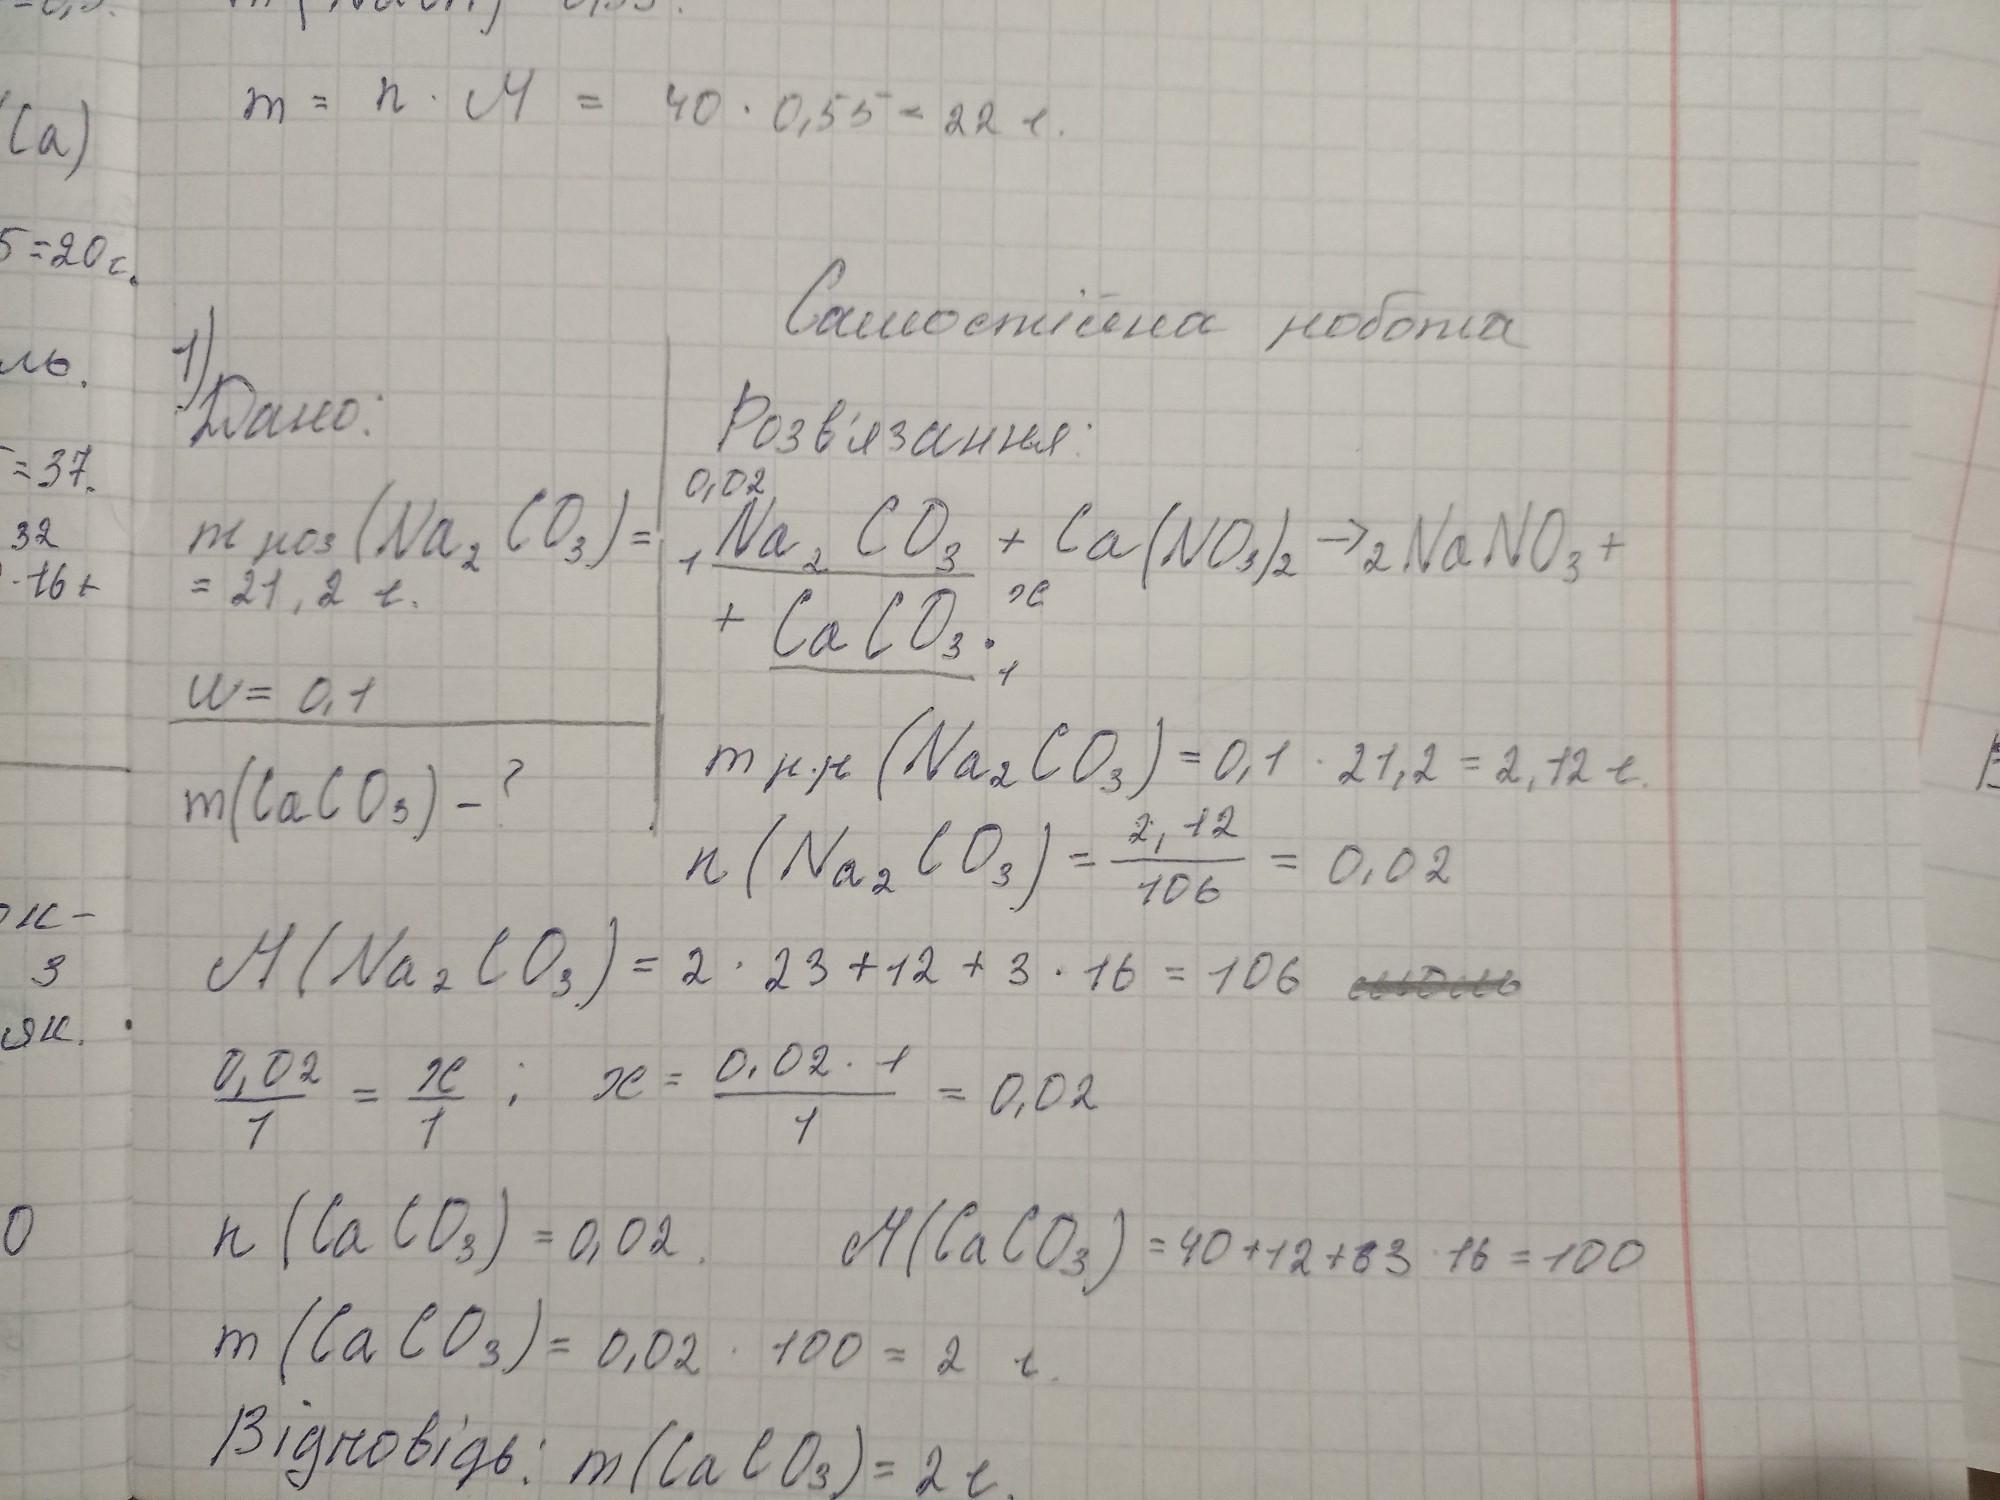 m = n · M = 40 · 0,55 = 22 г.
Са)
5=20 г.
ль.
=37.
32
·16+
Самостійна робота
1)
Дано:
m роз (Na2CO3) =
= 21,2 г.
w = 0,1
m(CaCO3) – ?
Розв'язання:
0,02
1 Na2CO3 + Ca(NO3)2 → 2NaNO3 +
x
+ CaCO3.
1
m р.р (Na2CO3) = 0,1 · 21,2 = 2,12 г.
n (Na2CO3) = 2,12/106 = 0,02
3
як.
0
M (Na2CO3) = 2 · 23 + 12 + 3 · 16 = 106
0,02/1 = x/1 ; x = 0,02 · 1/1 = 0,02
n (CaCO3) = 0,02. M(CaCO3) = 40+12+3 · 16 = 100
m (CaCO3) = 0,02 · 100 = 2 г.
Відповідь: m(CaCO3) = 2 г.